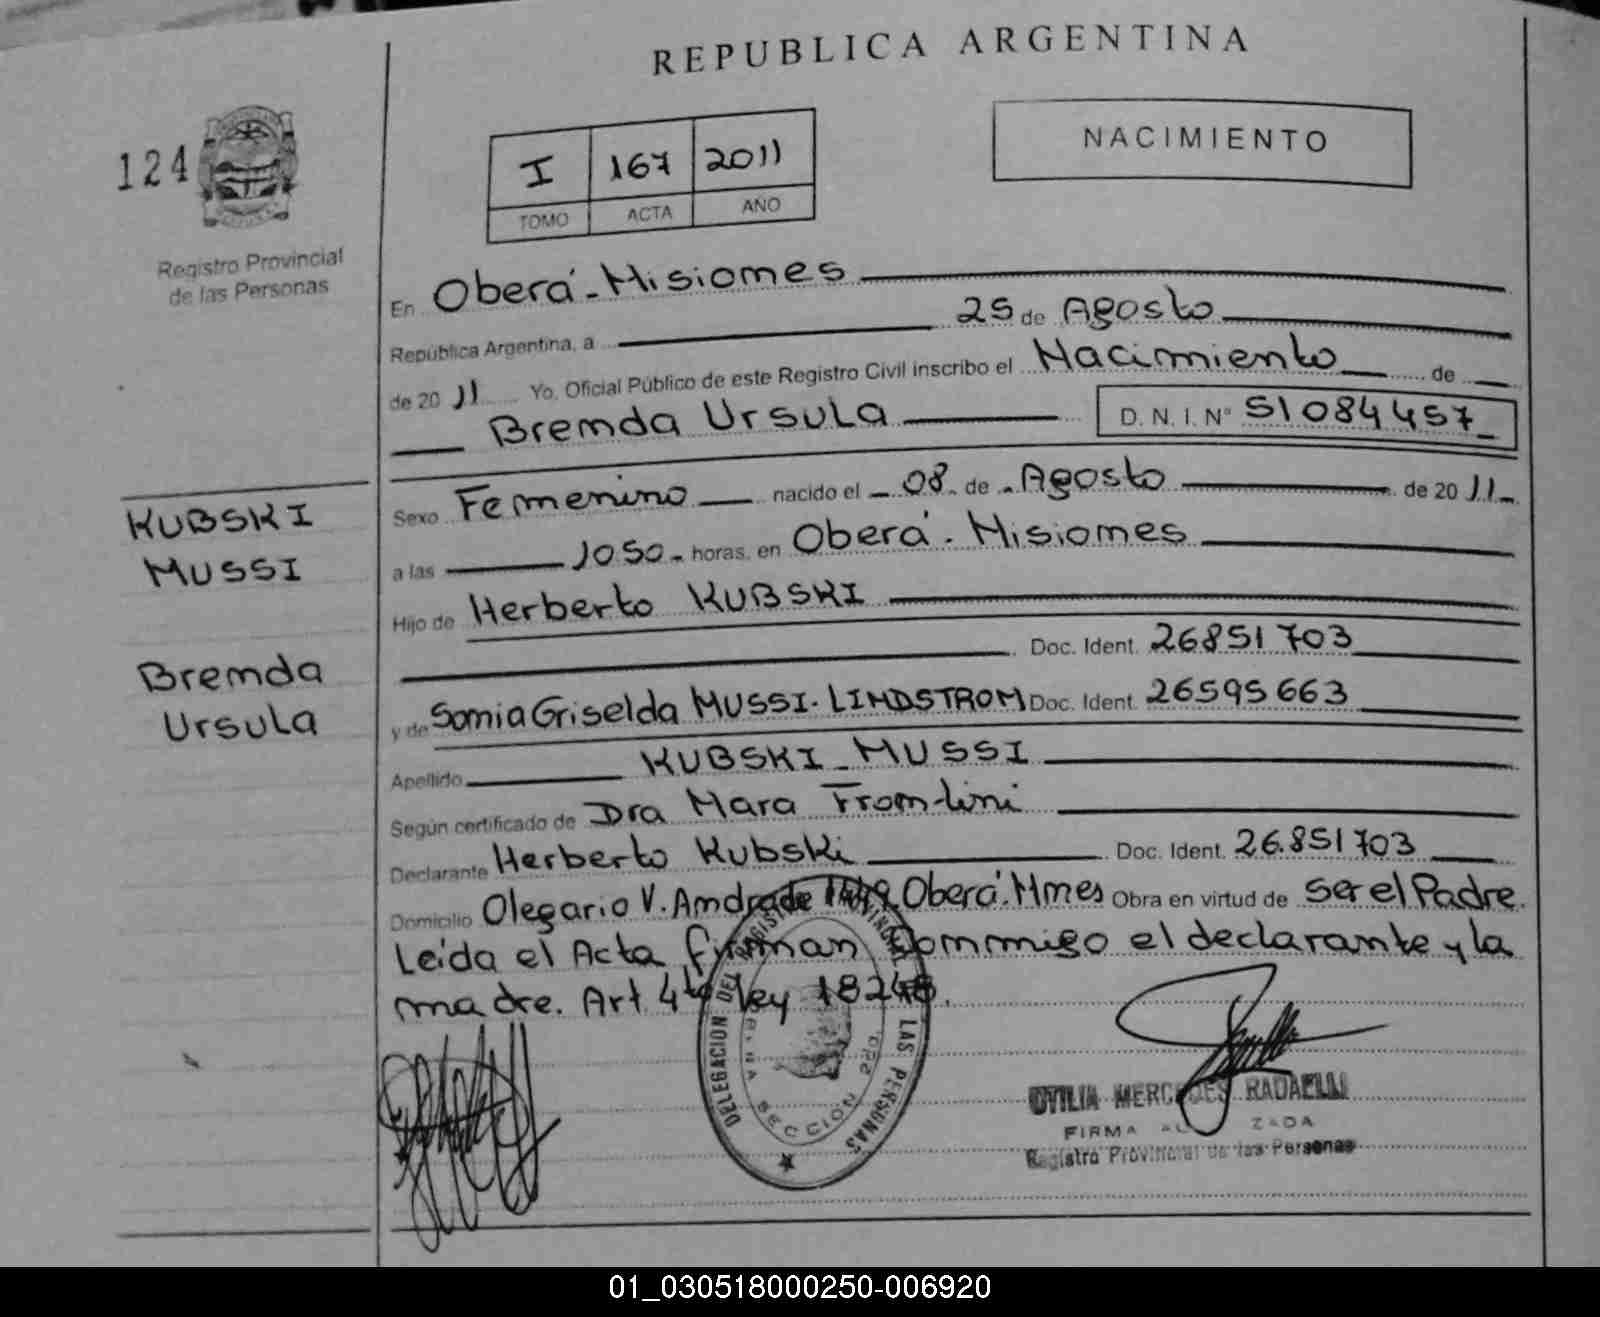 REPUBLICA ARGENTINA
124
I 167 2011
TOMO ACTA AÑO
NACIMIENTO
Registro Provincial
de las Personas
En Oberá - Misiones
República Argentina, a 25 de Agosto
de 2011 Yo, Oficial Público de este Registro Civil inscribo el Nacimiento de
Brenda Ursula D. N. I. N° 51084457
Sexo Femenino nacido el 08 de Agosto de 2011
a las 1050 horas, en Oberá - Misiones
Hijo de Herberto KUBSKI
Doc. Ident. 26851703
y de Sonia Griselda MUSSI - LINDSTROM Doc. Ident. 26595663
Apellido KUBSKI MUSSI
Según certificado de Dra Mara
Declarante Herberto Kubski Doc. Ident. 26.851703
Domicilio Olegario V. Andrade Oberá. Mnes Obra en virtud de ser el Padre.
Leída el Acta firman conmigo el declarante y la
madre. Art 4to ley 18248.
KUBSKI
MUSSI
Brenda
Ursula
DELEGACION DEL REGISTRO PROVINCIAL DE LAS PERSONAS
SECCION 2da.
OTILIA MERCEDES RADAELLI
FIRMA AUTORIZADA
Registro Provincial de las Personas
01_030518000250-006920